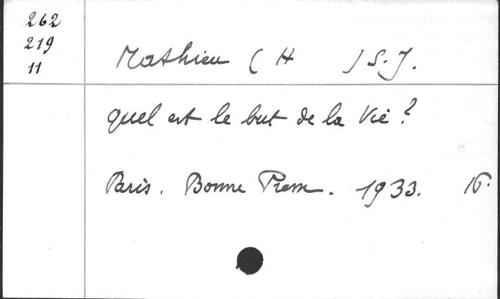 262
219
11
Mathieu ( H ) S.J.
Quel est le but de la Vie ?
Paris. Bonne Presse. 1933. 16°